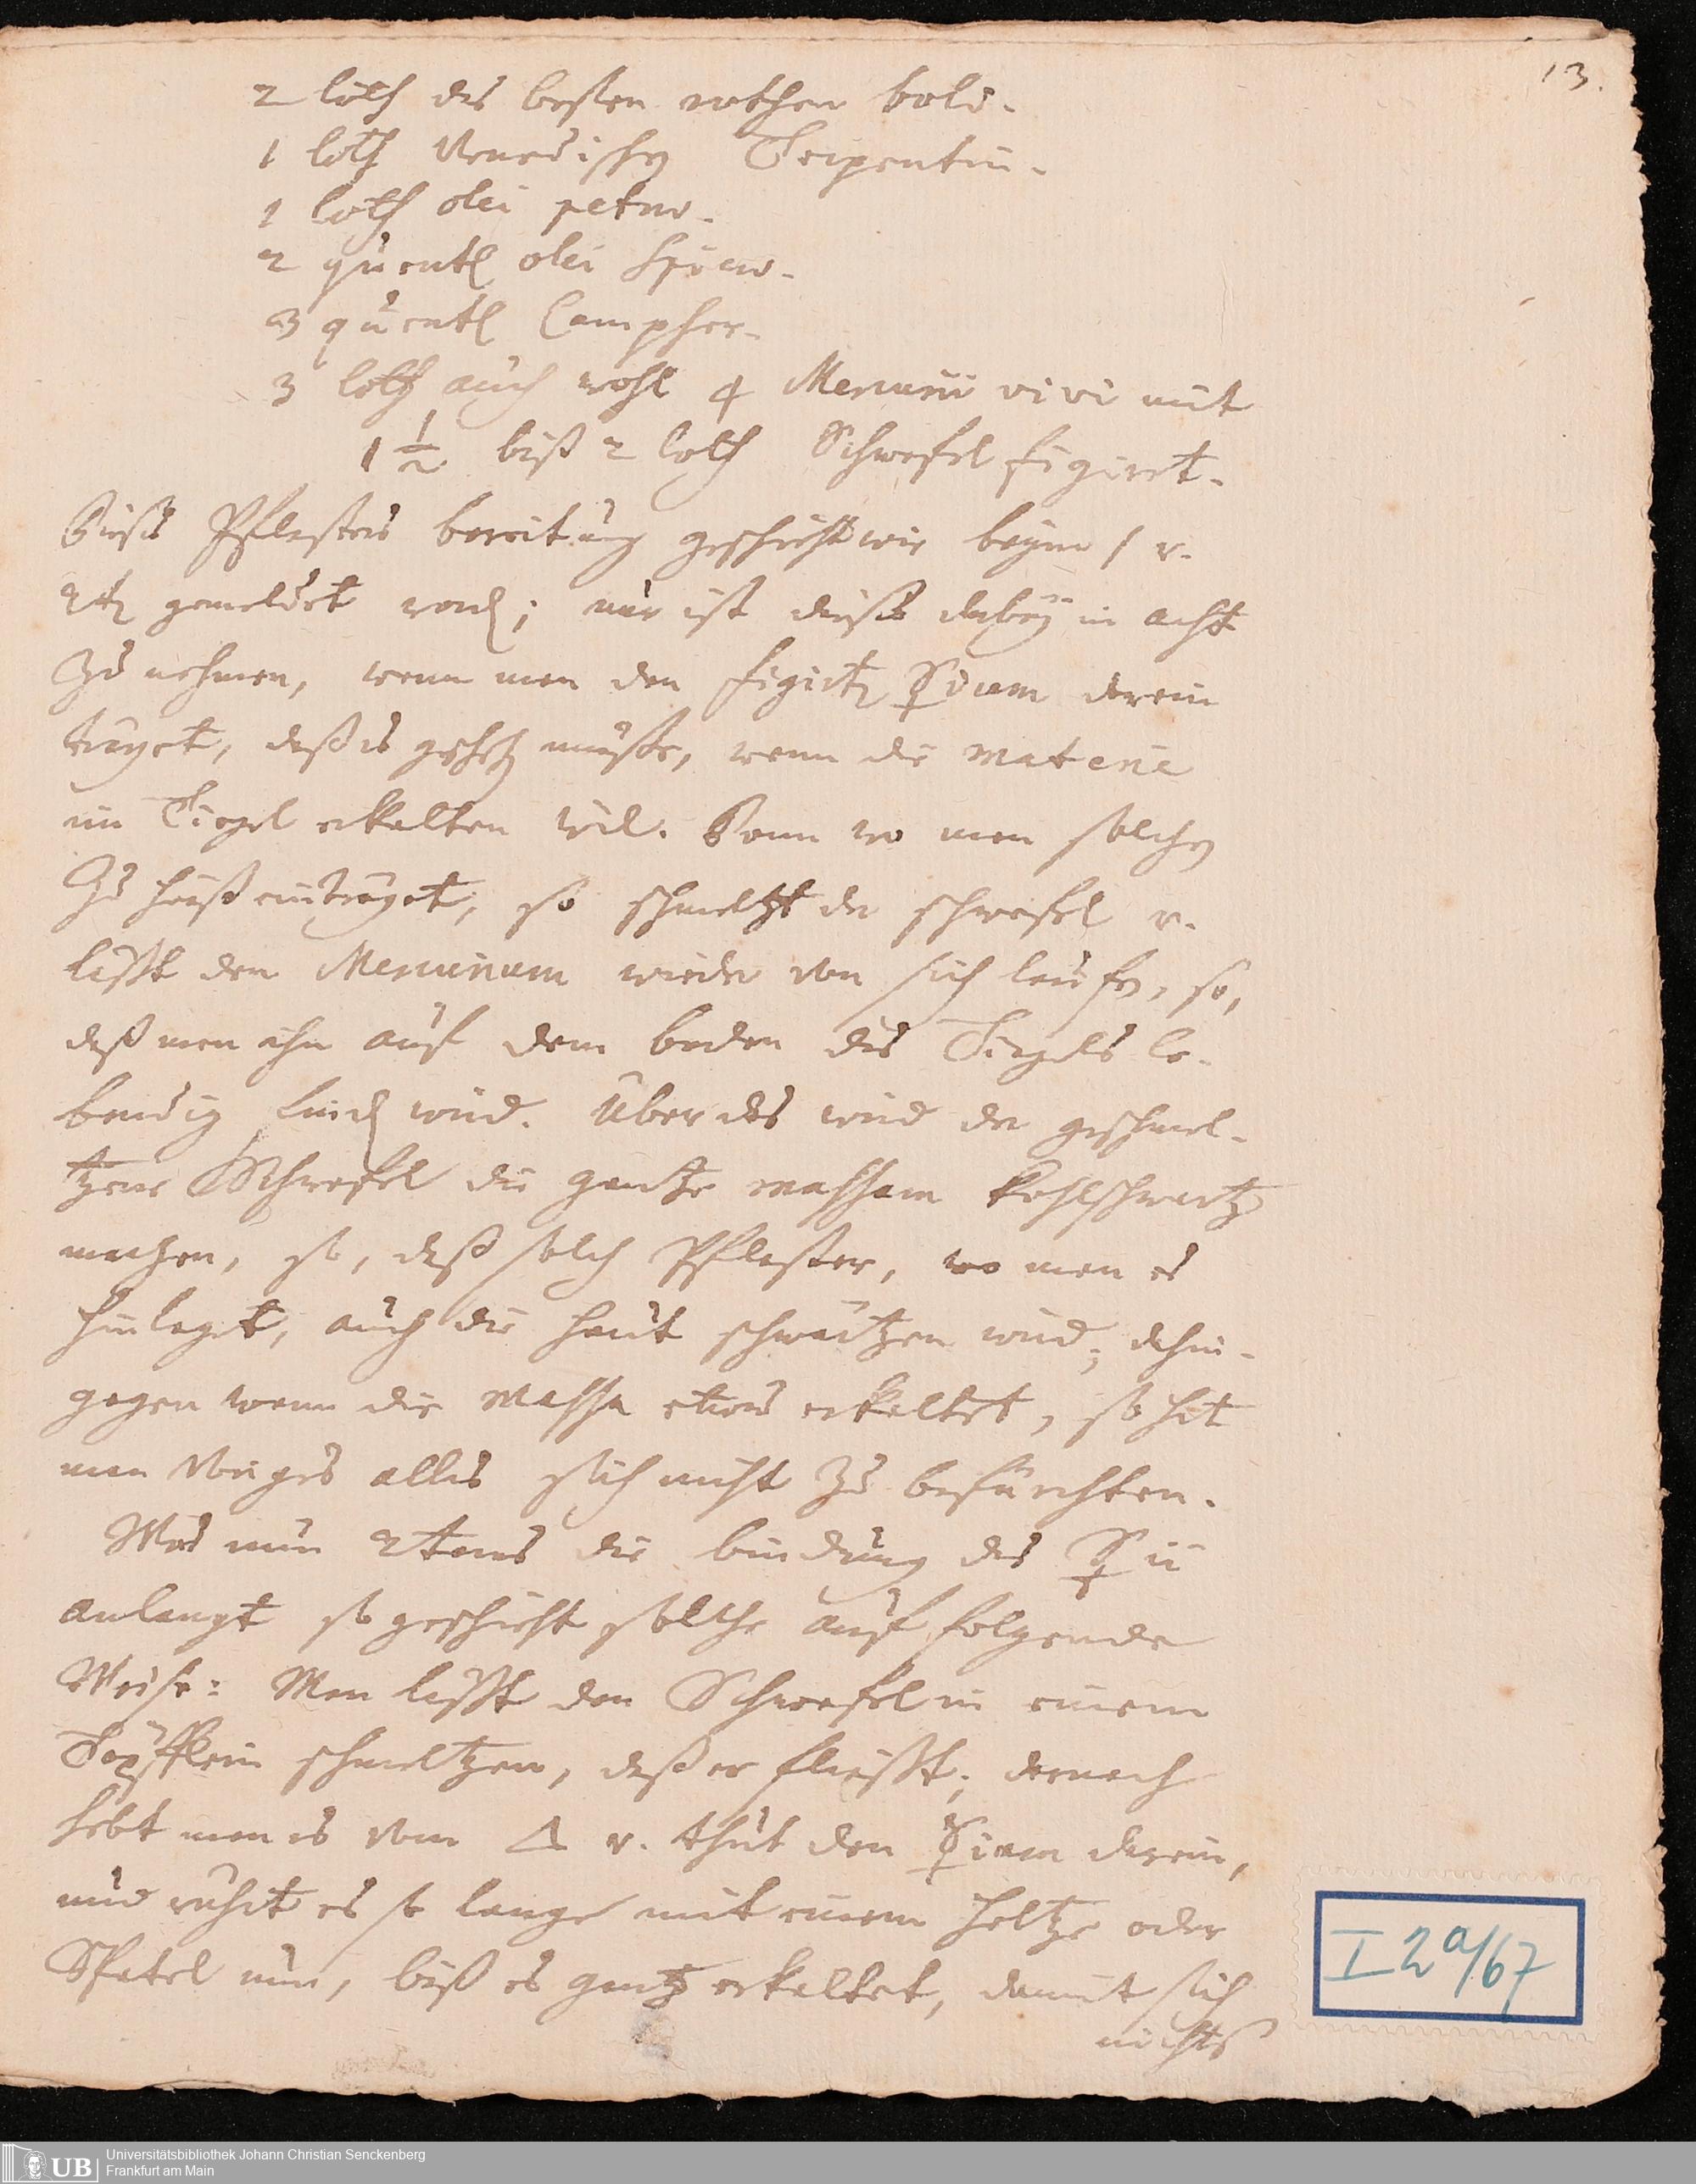 13.
2 loth des besten rothen boli.
1 loth Venedischen Terpentin.
1 loth olei petrae.
2 quentl olei spicae.
3 quentl Campher.
3 loth auch wohl 4 Mercurii vivi mit
1 1/2 biß 2 loth Schwefel figiret.
Dieses Pflasters bereitung geschieht wie beym 1 v.
2ten gemeldet word; nur ist dieses dabey in acht
zu nehmen, wenn man den figirten ☿ium darein
träget, daß es geschehen müsse, wenn die materie
im Tiegel erkalten will. Denn wo man solchen
zu heiß einträget, so schmeltzt der schwefel v.
lässt den Mercurium wieder von sich lauffen, so,
daß man ihn auf dem boden des Tiegels le-
bendig find wird. Über das wird der geschmel-
tzene Schwefel die gantze massam kohlschwartz
machen, so, daß solch Pflaster, wo man es
hinleget, auch die haut schwärtzen wird; dahin-
gegen wenn die Massa etwas erkaltet, so hat
man voriges alles sich nicht zu befürchten.
Was nun 2tens die bindung des ☿ii
anlangt so geschieht solche auf folgende
Weise: Man lässt den Schwefel in einem
Töpfflein schmeltzen, daß er fliesst; darnach
hebt man es vom △ v. thut den ☿ium darein,
und rührt es so lange mit einem holtze oder
Spatel um, biß es gantz erkaltet, damit sich
nichts
I 2a/67
UB
Universitätsbibliothek Johann Christian Senckenberg
Frankfurt am Main